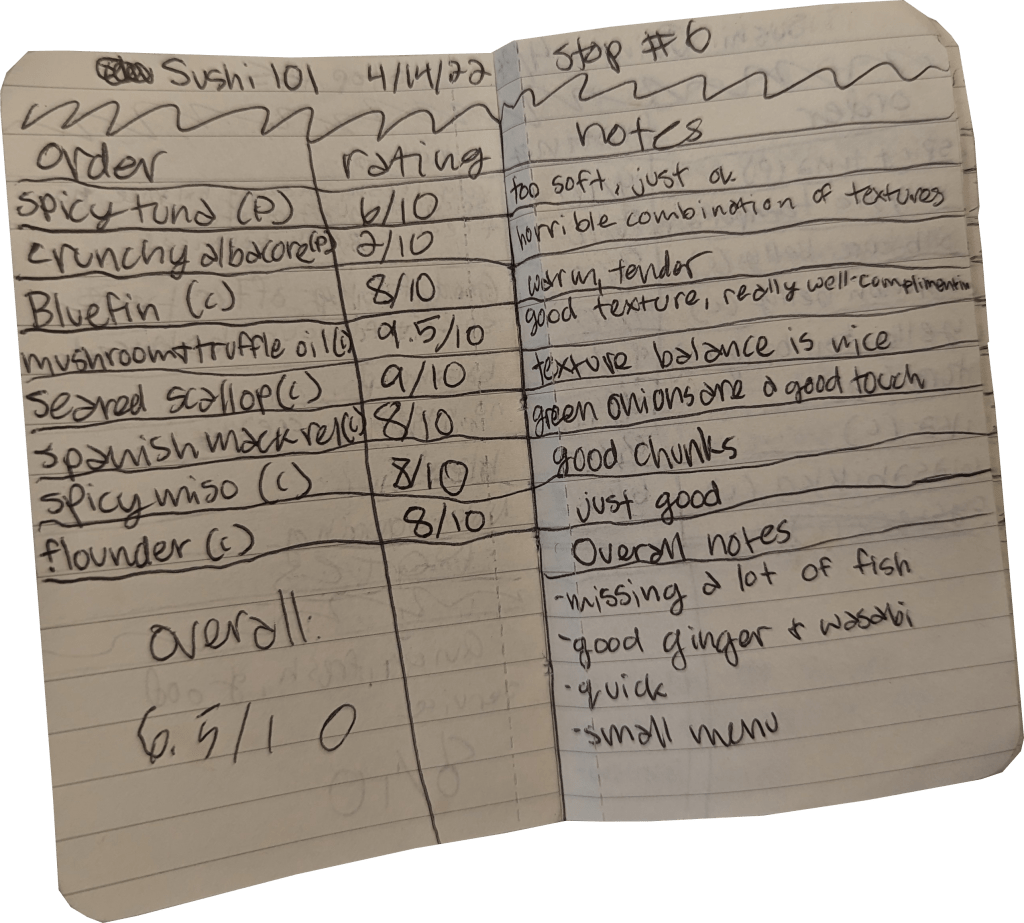 Sushi 101 4/14/22 Stop #6
order rating notes
spicy tuna (P) 6/10 too soft, just ok
crunchy albacore(P) 2/10 horrible combination of textures
Bluefin (C) 8/10 warm, tender
mushroom+truffle oil(C) 9.5/10 good texture, really well-complimenting
Seared scallop(C) 9/10 texture balance is nice
spanish mackrel(C) 8/10 green onions are a good touch
spicy miso (C) 8/10 good chunks
flounder (C) 8/10 just good
Overall notes
-missing a lot of fish
overall: -good ginger + wasabi
-quick
6.5/10 -small menu